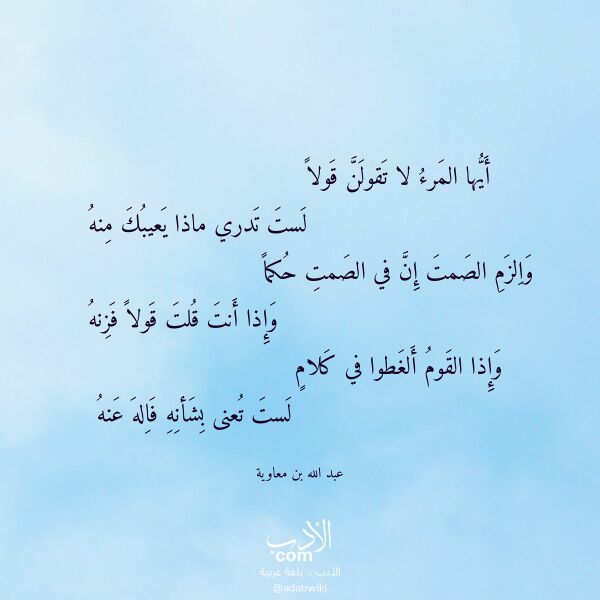 أَيُّها المَرءُ لا تَقولَنَّ قَولاً
لَستَ تَدري ماذا يَعيبُكَ مِنهُ
وَاِلزَمِ الصَمتَ إِنَّ في الصَمتِ حُكماً
وَإِذا أَنتَ قُلتَ قَولاً فَزِنهُ
وَإِذا القَومُ أَلغَطوا في كَلامٍ
لَستَ تُعنى بِشَأنِهِ فَاِلهَ عَنهُ
عبد الله بن معاوية
الأدب
com
الأدب .. بلغة عربية
@adabwiki